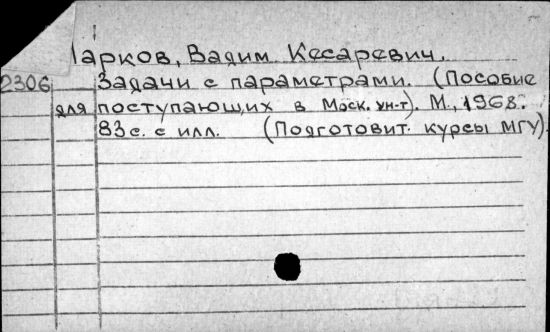 Марков, Вадим Кесаревич.
2306 Задачи с параметрами. (Пособие
для поступающих в Моск. ун-т). М., 1968.
83 с. с илл. (Подготовит. курсы МГУ).